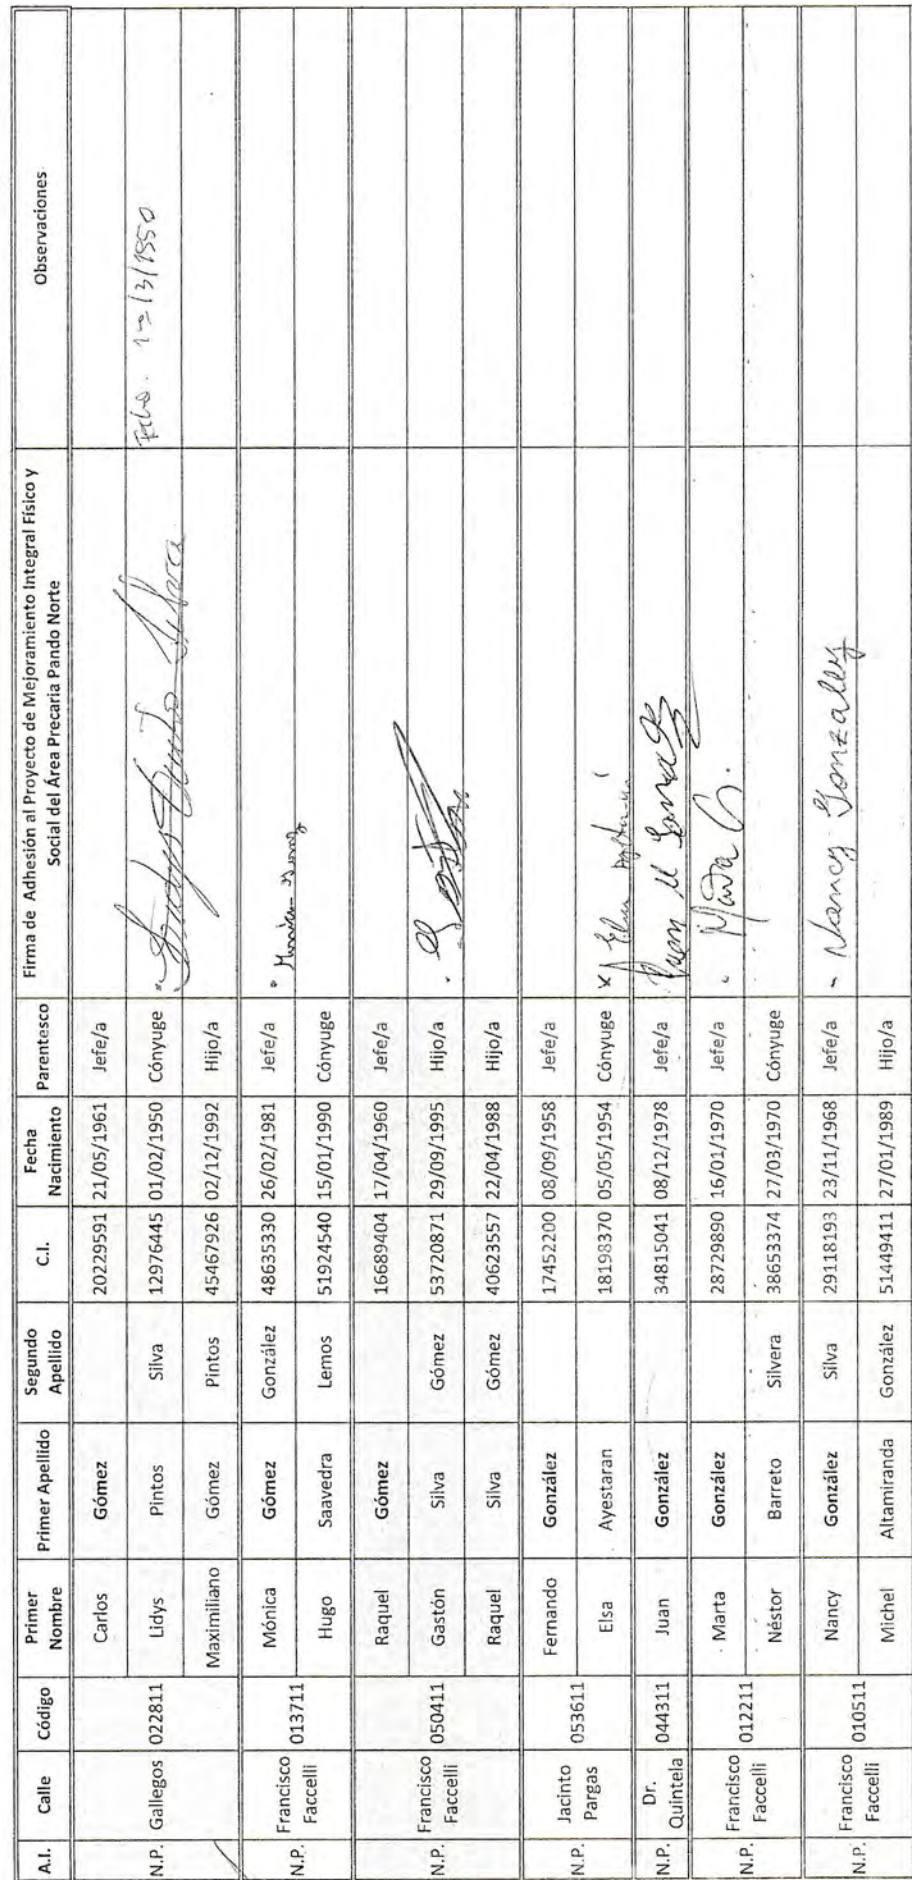 A.I. Calle Código Primer Nombre Primer Apellido Segundo Apellido C.I. Fecha Nacimiento Parentesco Firma de Adhesión al Proyecto de Mejoramiento Integral Físico y Social del Área Precaria Pando Norte Observaciones
N.P. Gallegos 022811 Carlos Gómez 20229591 21/05/1961 Jefe/a
Lidys Pintos Silva 12976445 01/02/1950 Cónyuge Lidys Pintos Silva
Maximiliano Gómez Pintos 45467926 02/12/1992 Hijo/a
N.P. Francisco Faccelli 013711 Mónica Gómez González 48635330 26/02/1981 Jefe/a
Hugo Saavedra Lemos 51924540 15/01/1990 Cónyuge
N.P. Francisco Faccelli 050411 Raquel Gómez 16689404 17/04/1960 Jefe/a
Gastón Silva Gómez 53720871 29/09/1995 Hijo/a Gastón
Raquel Silva Gómez 40623557 22/04/1988 Hijo/a
N.P. Jacinto Pargas 053611 Fernando González 17452200 08/09/1958 Jefe/a
Elsa Ayestaran 18198370 05/05/1954 Cónyuge x Elsa
N.P. Dr. Quintela 044311 Juan González 34815041 08/12/1978 Jefe/a Juan
N.P. Francisco Faccelli 012211 Marta González 28729890 16/01/1970 Jefe/a Marta G.
Néstor Barreto Silvera 38653374 27/03/1970 Cónyuge
N.P. Francisco Faccelli 010511 Nancy González Silva 29118193 23/11/1968 Jefe/a Nancy Gonzalez
Michel Altamiranda González 51449411 27/01/1989 Hijo/a